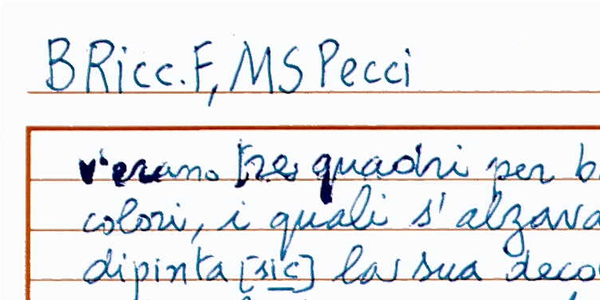 B Ricc. F, MS Pecci
v'erano tre quadri per b
colori, i quali s'alzava
dipinta [sic] la sua deco